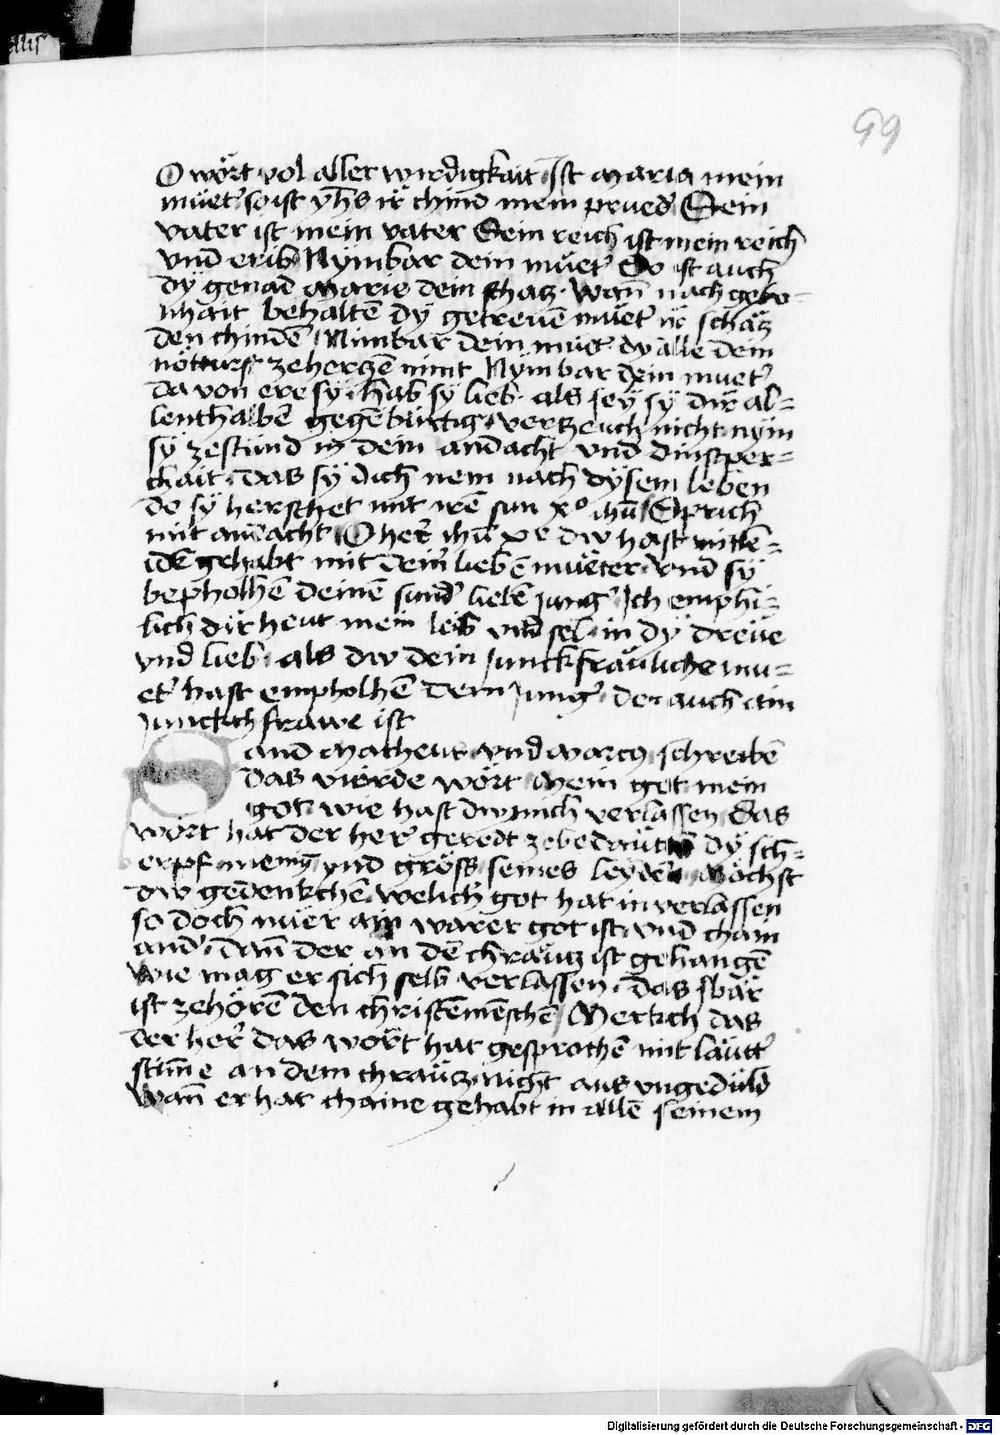 99
O wort vol aller wirdigkait Ist maria mein
müet' so ist yh̄s ir chind mein prued' Sein
vater ist mein vater Sein reich ist mein reich
vnd erib Nym̄bar dein müet' So ist auch
dy genad marie dein schacz · wan̄ nach gebo-
nhait behaltē dy getrewē müet' ir schäcz
den chindē Nimbar dein müet' dy alle dein
notturft ze herczē nimt Nym bar dein muet'
da von ere sy hab sy lieb · als sey sy dir al=
lenthalbē gegēbürtig verczeuch nicht nym
sy ze stund in dein andacht vnd dinstper=
chait · das sy dich nem nach dysem leben
do sy herschet mit irē sun xp̄o ih̄u Sprich
mit andacht O her' ih̄u xp̄e dw hast mitlē=
idē gehabt mit dein' liebē müeter vnd sy
bepholhē deinē sund' liebē jung' Ich emphi=
lich dir heut mein leib vnd sel in dy drewe
vnd lieb · als dw dein junckfräuliche mu=
et' hast empholhē dem jung' der auch ain
junckchfrawe ist
Sand matheus vnd marcus schreiben
das vierde wort Mein got mein
got wie hast dw mich verlassen Das
wort hat der her' geredt ze bedäuten dy sch=
erpf menig vnd gröss seines leydēs Möchst
dw gedenkchē welich' got hat in verlassen
so doch nuer ain warer got ist vnd chain
and' dan̄ der an dē chräucz ist gehangē
wie mag er sich selb verlassen · das swär
ist ze hörē den christēmēschē Merkch das
der her' das wort hat gesprochē mit lautt'
stim̄e an dem chräucz nicht aus vngeduld
wan̄ er hat chaine gehabt in allē seinem
Digitalisierung gefördert durch die Deutsche Forschungsgemeinschaft - DFG